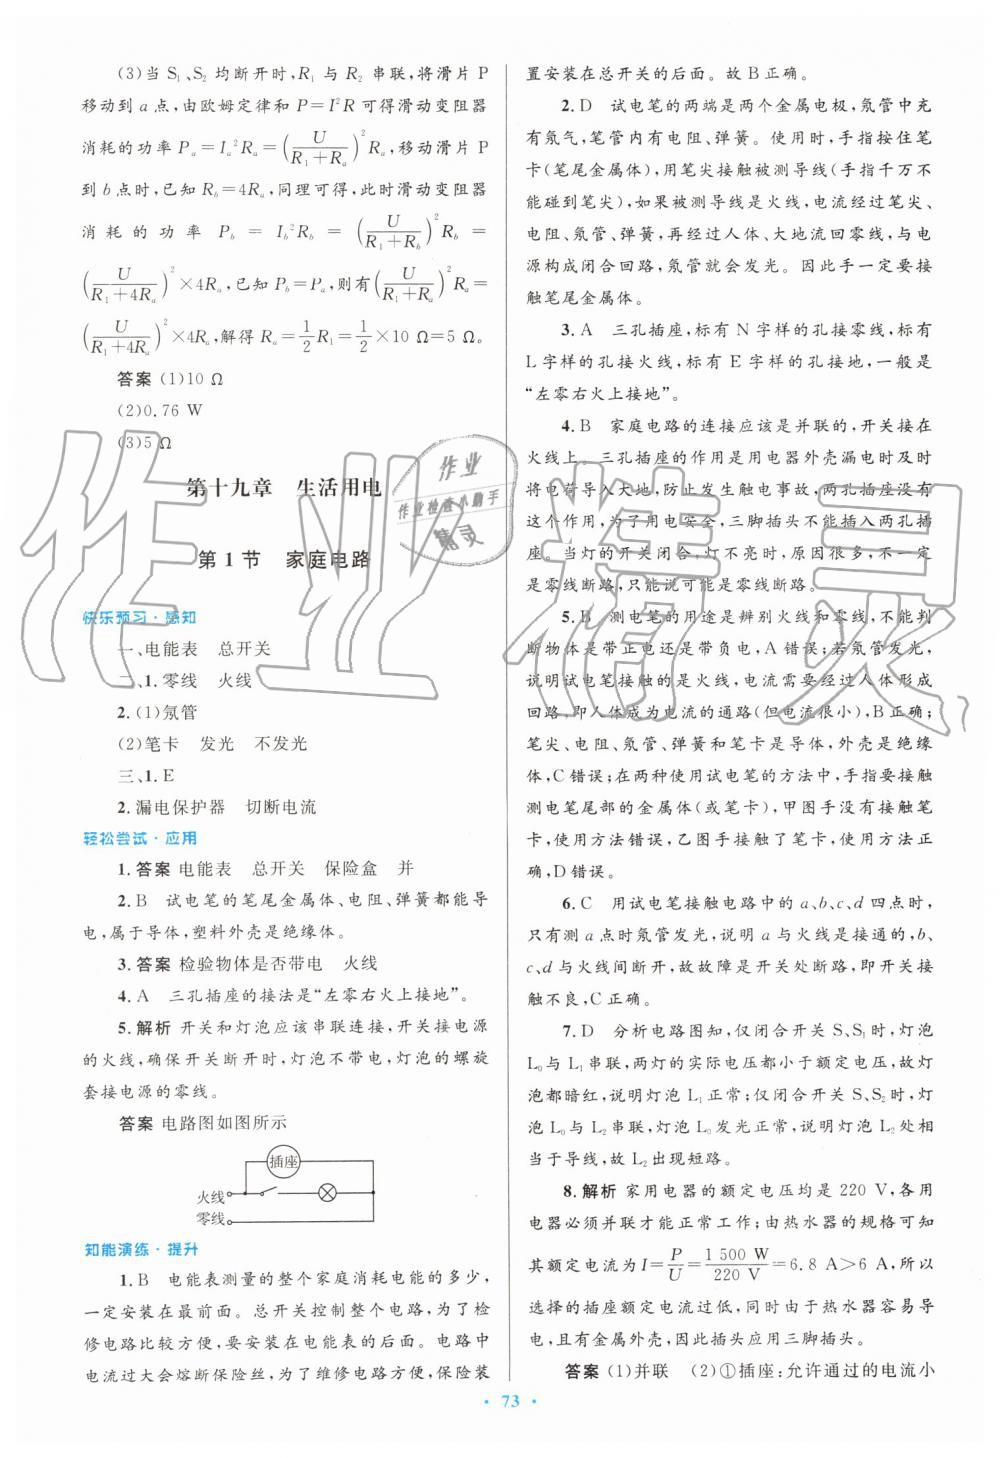 (3)当 S₁、S₂ 均断开时,R₁ 与 R₂ 串联,将滑片 P
移动到 a 点,由欧姆定律和 P=I²R 可得滑动变阻器
消耗的功率 Pₐ=Iₐ²Rₐ=(U/(R₁+Rₐ))²Rₐ,移动滑片 P
到 b 点时,已知 R_b=4Rₐ,同理可得,此时滑动变阻器
消耗的功率 P_b=I_b²R_b=(U/(R₁+R_b))²R_b=
(U/(R₁+4Rₐ))²×4Rₐ,已知 P_b=Pₐ,则有(U/(R₁+Rₐ))²Rₐ=
(U/(R₁+4Rₐ))²×4Rₐ,解得 Rₐ=1/2R₁=1/2×10 Ω=5 Ω。
答案 (1)10 Ω
(2)0.76 W
(3)5 Ω
第十九章 生活用电
第 1 节 家庭电路
快乐预习·感知
一、电能表 总开关
二、1.零线 火线
2.(1)氖管
(2)笔卡 发光 不发光
三、1.E
2.漏电保护器 切断电流
轻松尝试·应用
1.答案 电能表 总开关 保险盒 并
2.B 试电笔的笔尾金属体、电阻、弹簧都能导
电,属于导体,塑料外壳是绝缘体。
3.答案 检验物体是否带电 火线
4.A 三孔插座的接法是“左零右火上接地”。
5.解析 开关和灯泡应该串联连接,开关接电源
的火线,确保开关断开时,灯泡不带电,灯泡的螺旋
套接电源的零线。
答案 电路图如图所示
插座
火线
零线
知能演练·提升
1.B 电能表测量的整个家庭消耗电能的多少,
一定安装在最前面。总开关控制整个电路,为了检
修电路比较方便,要安装在电能表的后面。电路中
电流过大会熔断保险丝,为了维修电路方便,保险装
置安装在总开关的后面。故 B 正确。
2.D 试电笔的两端是两个金属电极,氖管中充
有氖气,笔管内有电阻、弹簧。使用时,手指按住笔
卡(笔尾金属体),用笔尖接触被测导线(手指千万不
能碰到笔尖),如果被测导线是火线,电流经过笔尖、
电阻、氖管、弹簧,再经过人体、大地流回零线,与电
源构成闭合回路,氖管就会发光。因此手一定要接
触笔尾金属体。
3.A 三孔插座,标有 N 字样的孔接零线,标有
L 字样的孔接火线,标有 E 字样的孔接地,一般是
“左零右火上接地”。
4.B 家庭电路的连接应该是并联的,开关接在
火线上。三孔插座的作用是用电器外壳漏电时及时
将电荷导入大地,防止发生触电事故,两孔插座没有
这个作用,为了用电安全,三脚插头不能插入两孔插
座。当灯的开关闭合,灯不亮时,原因很多,不一定
是零线断路,只能说可能是零线断路。
5.B 测电笔的用途是辨别火线和零线,不能判
断物体是带正电还是带负电,A 错误;若氖管发光,
说明试电笔接触的是火线,电流需要经过人体形成
回路,即人体成为电流的通路(但电流很小),B 正确;
笔尖、电阻、氖管、弹簧和笔卡是导体,外壳是绝缘
体,C 错误;在两种使用试电笔的方法中,手指要接触
测电笔尾部的金属体(或笔卡),甲图手没有接触笔
卡,使用方法错误,乙图手接触了笔卡,使用方法正
确,D 错误。
6.C 用试电笔接触电路中的 a、b、c、d 四点时,
只有测 a 点时氖管发光,说明 a 与火线是接通的,b、
c、d 与火线间断开,故故障是开关处断路,即开关接
触不良,C 正确。
7.D 分析电路图知,仅闭合开关 S、S₁ 时,灯泡
L₀ 与 L₁ 串联,两灯的实际电压都小于额定电压,故灯
泡都暗红,说明灯泡 L₁ 正常;仅闭合开关 S、S₂ 时,灯
泡 L₀ 与 L₂ 串联,灯泡 L₀ 发光正常,说明灯泡 L₂ 处相
当于导线,故 L₂ 出现短路。
8.解析 家用电器的额定电压均是 220 V,各用
电器必须并联才能正常工作;由热水器的规格可知
其额定电流为 I=P/U=1 500 W/220 V=6.8 A>6 A,所以
选择的插座额定电流过低,同时由于热水器容易导
电,且有金属外壳,因此插头应用三脚插头。
答案 (1)并联 (2)①插座:允许通过的电流小
· 73 ·
作业精灵
作业
作业检查小助手
精灵